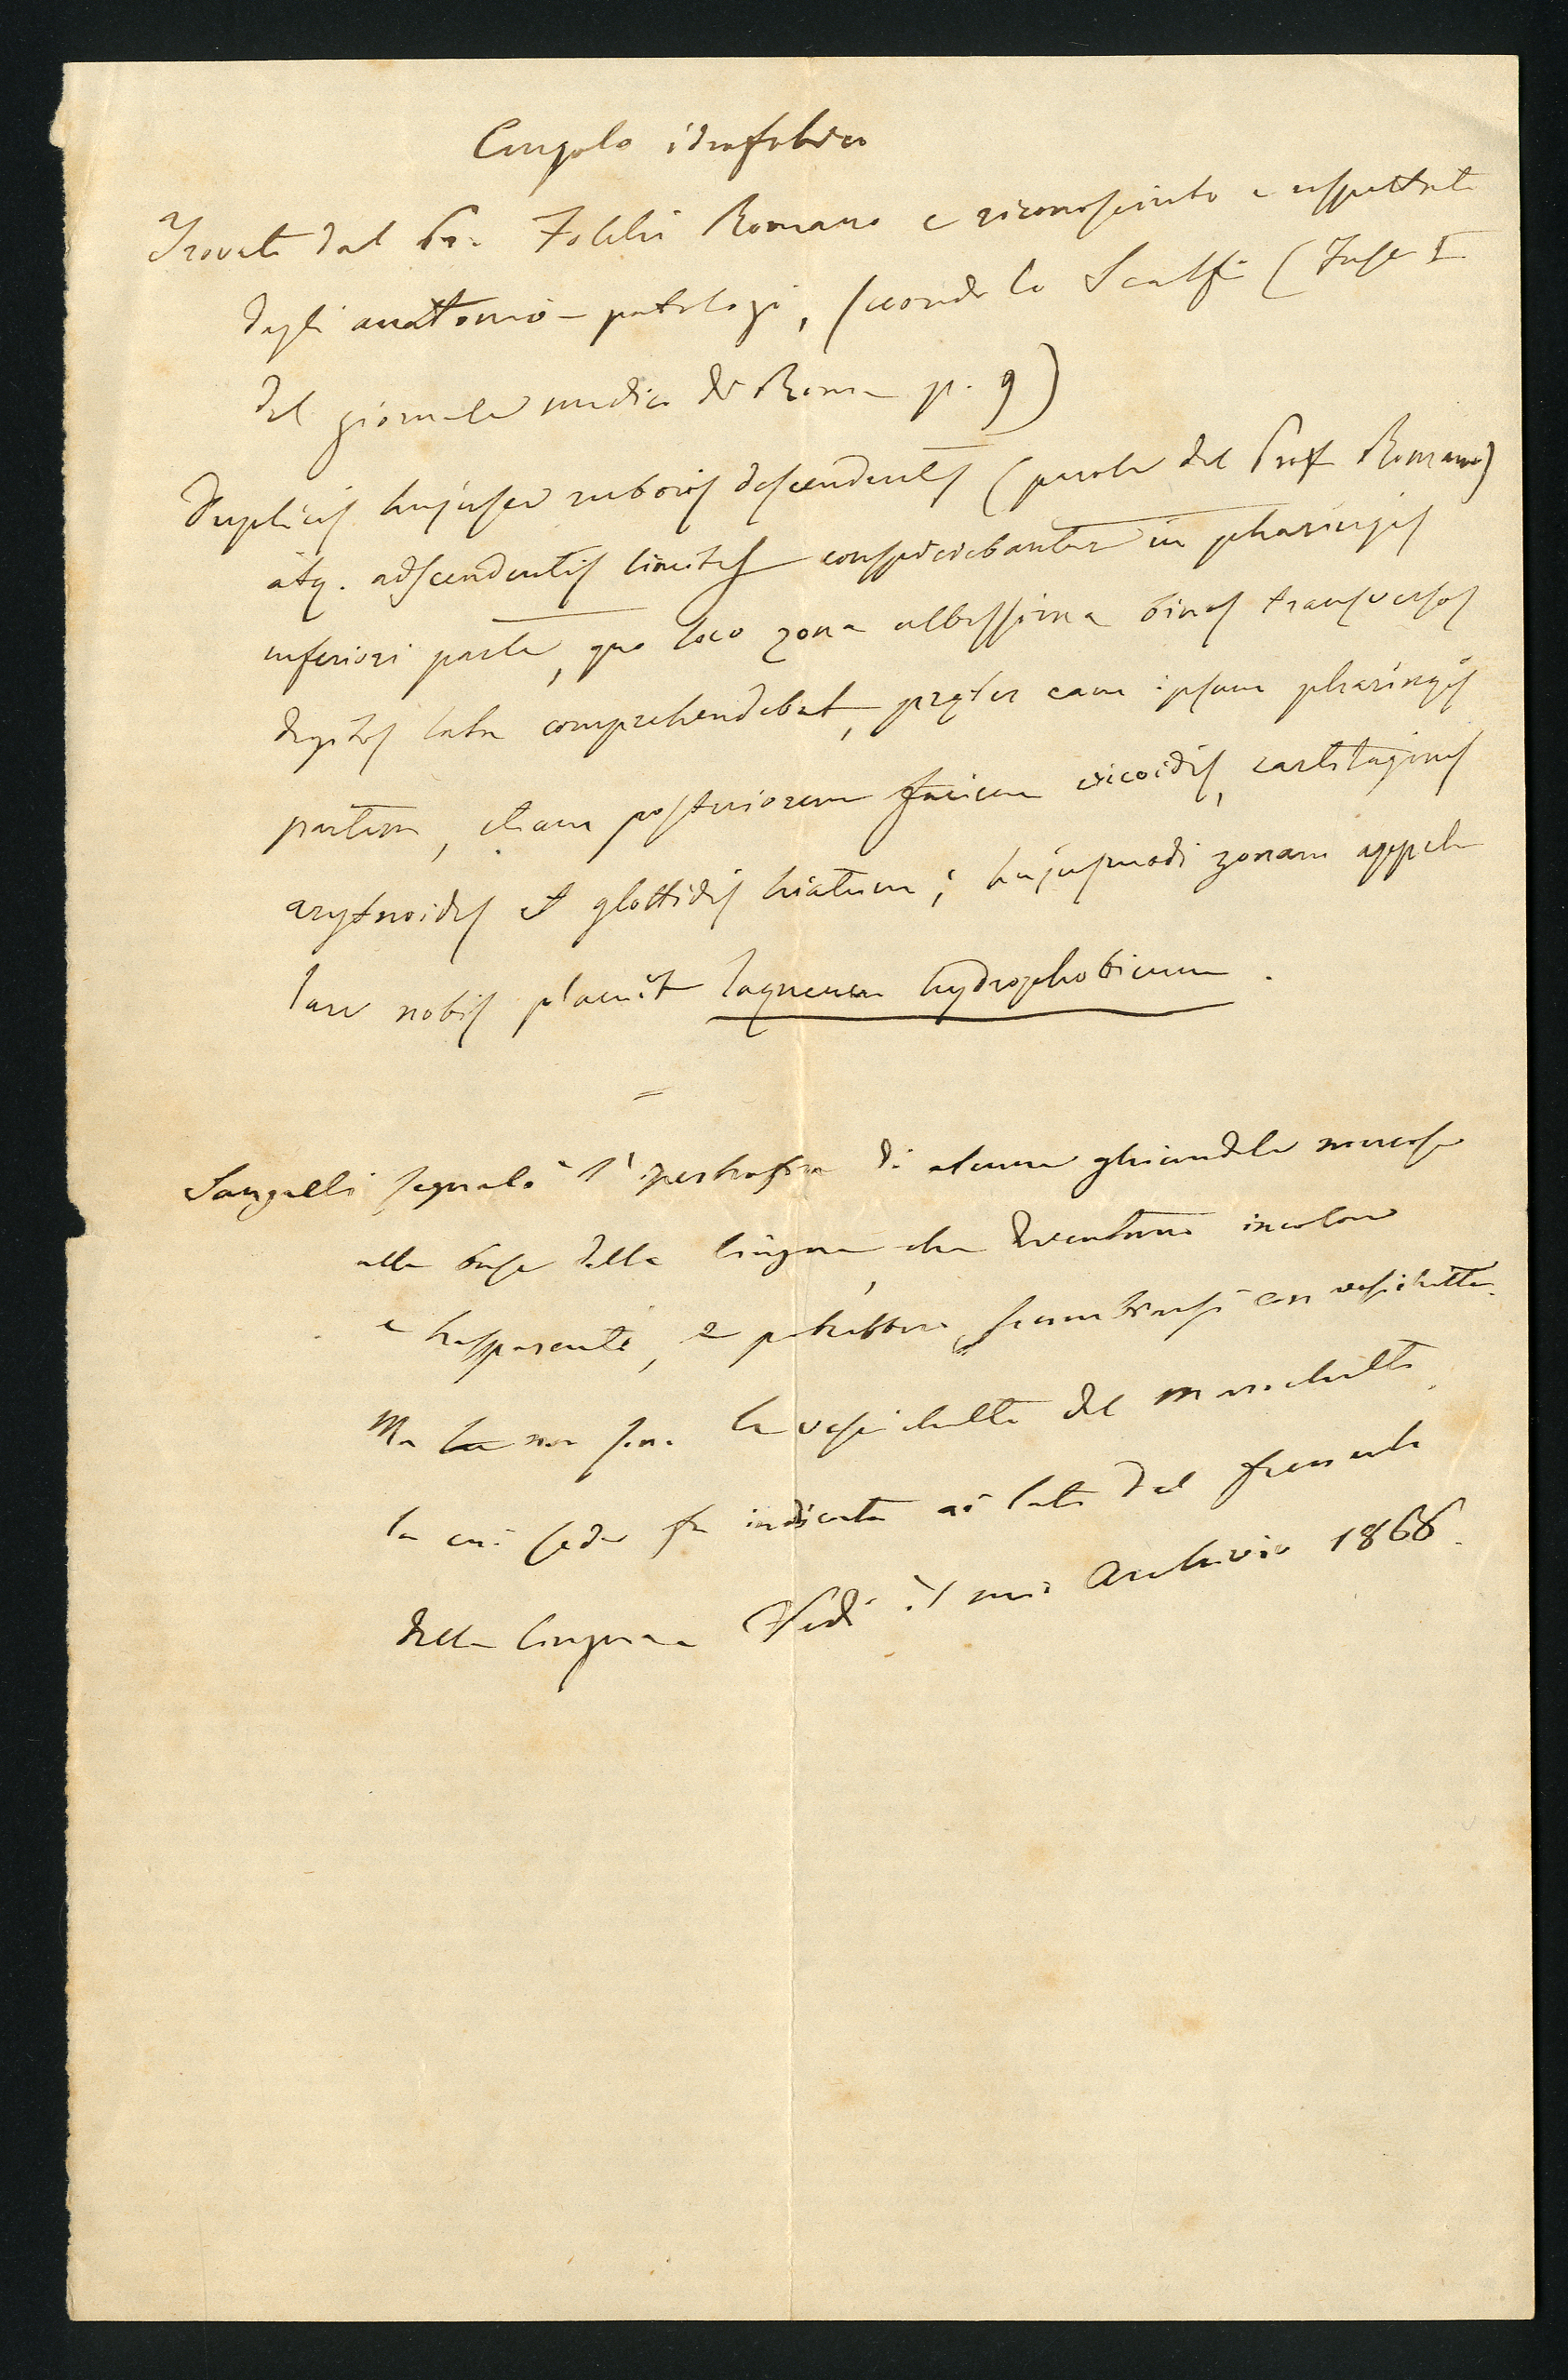 Cingolo idrofobico
Trovato dal Pr. Folchi Romano e riconosciuto e rispettato
dagli anatomo-patologi, secondo lo Scalfi (Fasc I
del giornale medico di Roma p. 9)
Duplicis hujusce ruboris descendentis (parole del Prof Romano)
atq. adscendentis limites conspiciebantur in pharingis
inferiori parte, quo loco zona albissima binos transversos
digitos lata comprehendebat, pręter eam ipsam pharingis
partem, etiam posteriorem faciem cricoidis, cartilagines
arytnoides et glottidis hiatum; hujusmodi zonam appel
lare nobis placuit laqueum hydrophobicum.
=
Sangalli segnalò l'ipertrofia di alcune ghiandole mucose
alla base della lingua, che diventano incolore
e trasparenti, e potrebbero scambiarsi con vescichette.
Ma non sono le vescichette del Marochetti
la cui sede fu indicata ai lati del frenulo
della lingua Vedi il mio Archivio 1866.